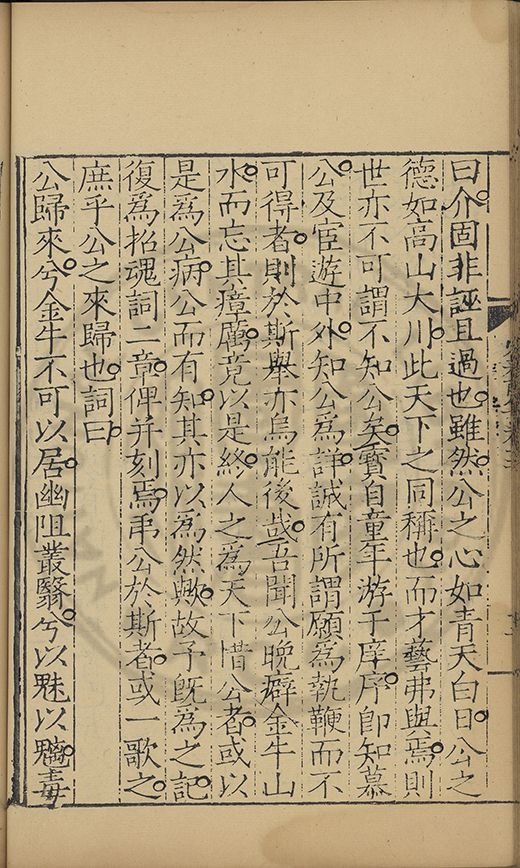 曰介固非誣且過也雖然公之心如青天白日公之
德如高山大川此天下之同稱也而才藝弗與焉則
世亦不可謂不知公矣寶自童年游于庠序卽知慕
公及宦遊中外知公爲詳誠有所謂願爲執鞭而不
可得者則於斯舉亦烏能後哉吾聞公晩癖金牛山
水而忘其瘴癘竟以是終人之為天下惜公者或以
是為公病公而有知其亦以為然歟故予旣為之記
復爲招魂詞二章俾并刻焉弔公於斯者或一歌之
庶乎公之來歸也詞曰
公歸來兮金牛不可以居幽阻叢翳兮以魅以魑毒